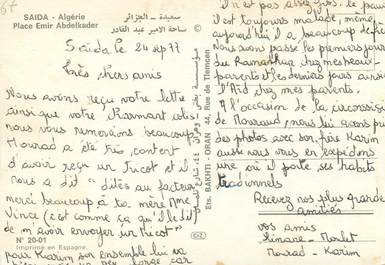 SAIDA - Algérie
Place Emir Abdelkader
سعيدة - الجزائر
ساحة الامير عبد القادر
Saïda le 24 sep 77
Très chers amis
Nous avons reçu votre lettre
ainsi que votre charmant colis
nous vous remercions beaucoup
Mourad a été très content
d'avoir reçu un tricot et il
nous a dit " dites au facteur
merci beaucoup à to. mère Mme
Vince (c'est comme ça qu'il le dit
de m'avoir envoyer un tricot"
pour Karim son ensemble lui va
N° 20-01
Imprimé en Espagne.
Ets. BAKHTI - ORAN 44, Rue de Tlemcen
il n'est pas assez gros le pauvre
il est toujours malade, même
aujourd'hui il a beaucoup de fiè
Nous avons passé les premiers jours
du Ramadhan chez mes beaux-
parents et les derniers jours ainsi
l'Aïd chez mes parents.
A l'occasion de la circoncision
de Mourad, nous lui avons pris
des photos avec son frère Karim
aussi nous vous en expédions
une, où il porte ses habits
traditionnels
Recevez nos plus grandes
amitiés
vos amis
Mourad - Karim